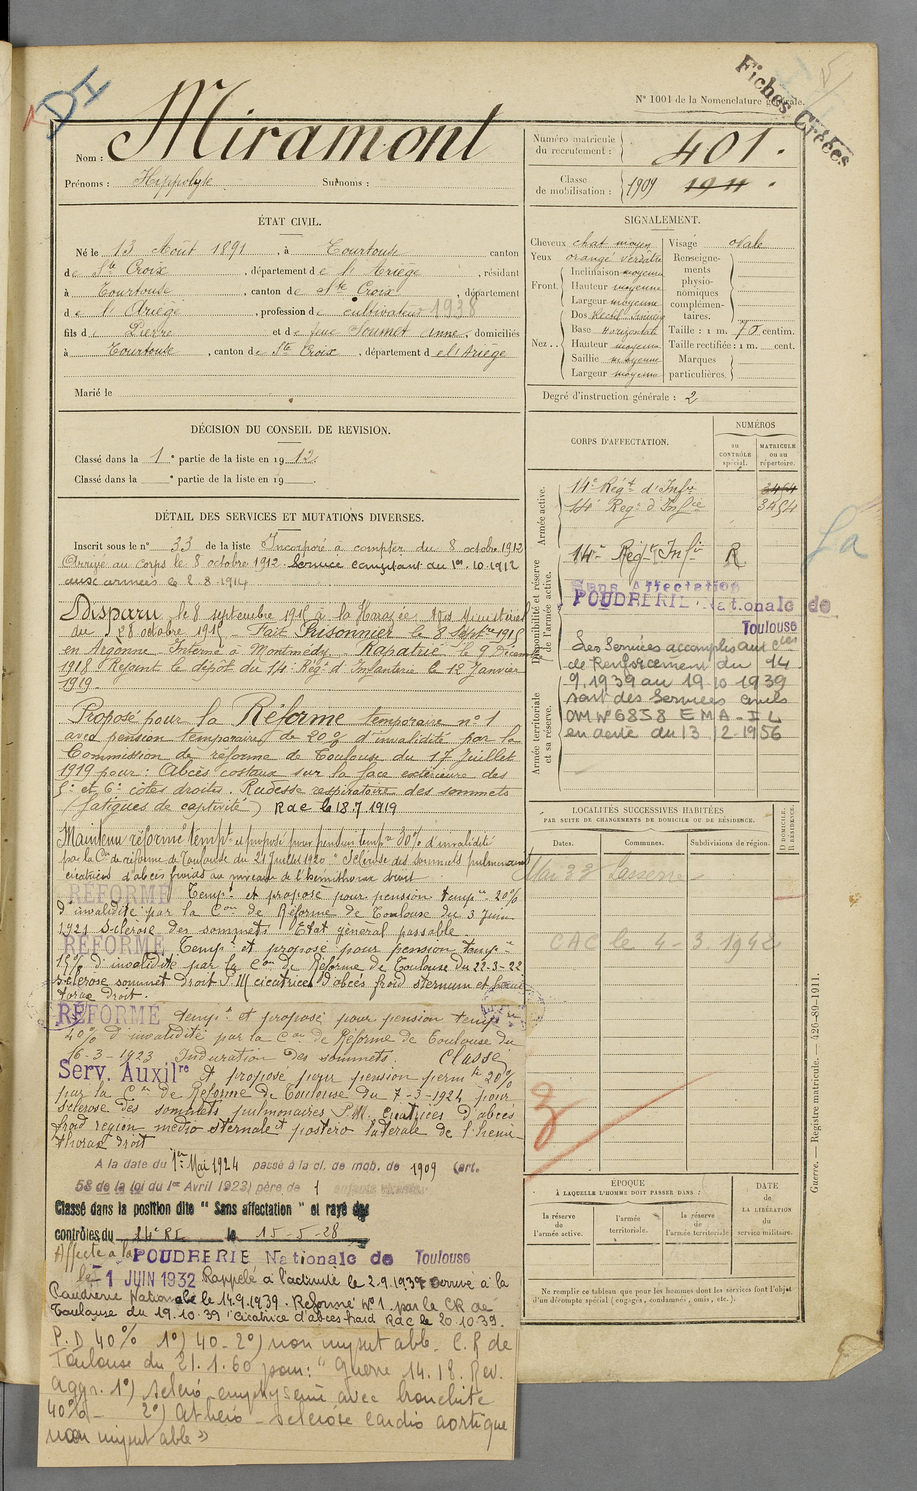 DI
Fiches Créées
N° 1001 de la Nomenclature générale.
Nom : Miramont
Prénoms : Hippolyte Surnoms :
Numéro matricule du recrutement : 401.
Classe de mobilisation : 1909 1911
ÉTAT CIVIL.
Né le 13 Août 1891, à Tourtouse canton
de Ste Croix, département de l'Ariège, résidant
à Tourtouse, canton de Ste Croix, département
de l'Ariège, profession de cultivateur 1938
fils de Pierre et de feue Soumet Anne, domiciliés
à Tourtouse, canton de Ste Croix, département de l'Ariège
Marié le
SIGNALEMENT.
Cheveux chat moyen
Yeux orangé verdatre
Front. Inclinaison moyenne
Hauteur moyenne
Largeur moyenne
Nez. Dos
Base horizontale
Hauteur moyenne
Saillie moyenne
Largeur moyenne
Visage ovale
Renseignements physionomiques complémentaires.
Taille : 1 m. 70 centim.
Taille rectifiée : 1 m. cent.
Marques particulières.
Degré d'instruction générale : 2
DÉCISION DU CONSEIL DE REVISION.
Classé dans la 1e partie de la liste en 1912.
Classé dans la e partie de la liste en 19
DÉTAIL DES SERVICES ET MUTATIONS DIVERSES.
Inscrit sous le n° 33 de la liste Incorporé à compter du 8 octobre 1912
Arrivé au corps le 8 octobre 1912. Service comptant du 1er.10.1912
aux armées le 2.8.1914
Disparu le 8 septembre 1915 à la Harazée. Avis Ministériel
du 28 octobre 1915 - Fait Prisonnier le 8 Septbre 1915
en Argonne. Interné à Montmédy. Rapatrié le 9 Décembre
1918. Rejoint le dépôt du 14e Régt d'Infanterie le 12 Janvier
1919.
Proposé pour la Réforme temporaire n° 1
avec pension temporaire de 20% d'invalidité par la
Commission de réforme de Toulouse du 17 Juillet
1919 pour : Abcès costaux sur la face extérieure des
5e et 6e côtes droites. Rudesse respiratoire des sommets
(fatigues de captivité) Rdc le 18.7.1919
Maintenu réformé tempre et proposé pour pension tempre 30% d'invalidité
par la Con de réforme de Toulouse du 21 Juillet 1920 "Sclérose des sommets pulmonaires
cicatrices d'abcès froids au niveau de l'hémithorax droit
RÉFORMÉ Tempre et proposé pour pension tempre 20%
d'invalidité par la Con de Réforme de Toulouse du 3 Juin
1921 Sclérose des sommets. Etat général passable.
RÉFORMÉ Tempre et proposé pour pension tempre
15% d'invalidité par la Con de Réforme de Toulouse du 22-5-22
Sclérose sommet droit P.M cicatrices d'abcès froid sternum et
torax droit.
RÉFORMÉ tempre et proposé pour pension tempre
20% d'invalidité par la Con de Réforme de Toulouse du
16-3-1923 Induration des sommets. Classé
Serv. Auxilre et proposé pour pension permte 20%
par la Con de Réforme de Toulouse du 7-3-1924 pour
sclérose des sommets pulmonaires P.M. cicatrices d'abcès
froid région médio sternale et postéro latérale de l'hémi
thorax droit
A la date du 1er Mai 1924 passé à la cl. de mob. de 1909 (art.
58 de la loi du 1er Avril 1923) père de 1
Classé dans la position dite "Sans affectation" et rayé des
contrôles du 14e RI le 15-5-28
Affecté à la POUDRERIE Nationale de Toulouse
le 1 JUIN 1932 Rappelé à l'activité le 2.9.1939 arrivé à la
Poudrerie Nationale le 14.9.1939. Réformé N°1 par la CR de
Toulouse du 19.10.39 "Cicatrice d'abcès froid Rdc le 20.10.39.
P.D 40% 1°) 40 - 2°) non imputable. C.R de
Toulouse du 21.1.60 pour : "Guerre 14.18. Rev.
aggr. 1°) scléro-emphysème avec bronchite
40% - 2°) athéro-sclérose cardio aortique
non imputable"
CORPS D'AFFECTATION.
NUMÉROS
au CONTRÔLE spécial.
MATRICULE ou au répertoire.
Armée active.
14e Régt d'Infie 3464
14e Régt d'Infie 3454
Disponibilité et réserve de l'armée active.
14e Régt Infie R
Sans Affectation
POUDRERIE Nationale de
Toulouse
Armée territoriale et sa réserve.
Les Services accomplis aux Cies
de Renforcement du 14
9.1939 au 19 10 1939
sont des Services civils
OM N° 6858 EMA-I L
en date du 13 / 2-1956
La
LOCALITÉS SUCCESSIVES HABITÉES
PAR SUITE DE CHANGEMENTS DE DOMICILE OU DE RÉSIDENCE.
Dates. Communes. Subdivisions de région. D DOMICILE. R RÉSIDENCE.
Mai 38 Lasserre
CAC le 4-3.1942
ÉPOQUE
À LAQUELLE L'HOMME DOIT PASSER DANS :
la réserve de l'armée active.
l'armée territoriale.
la réserve de l'armée territoriale
DATE de LA LIBÉRATION du service militaire.
Ne remplir ce tableau que pour les hommes dont les services font l'objet
d'un décompte spécial (engagés, condamnés, omis, etc.).
Guerre. — Registre matricule. — 426-89-1911.